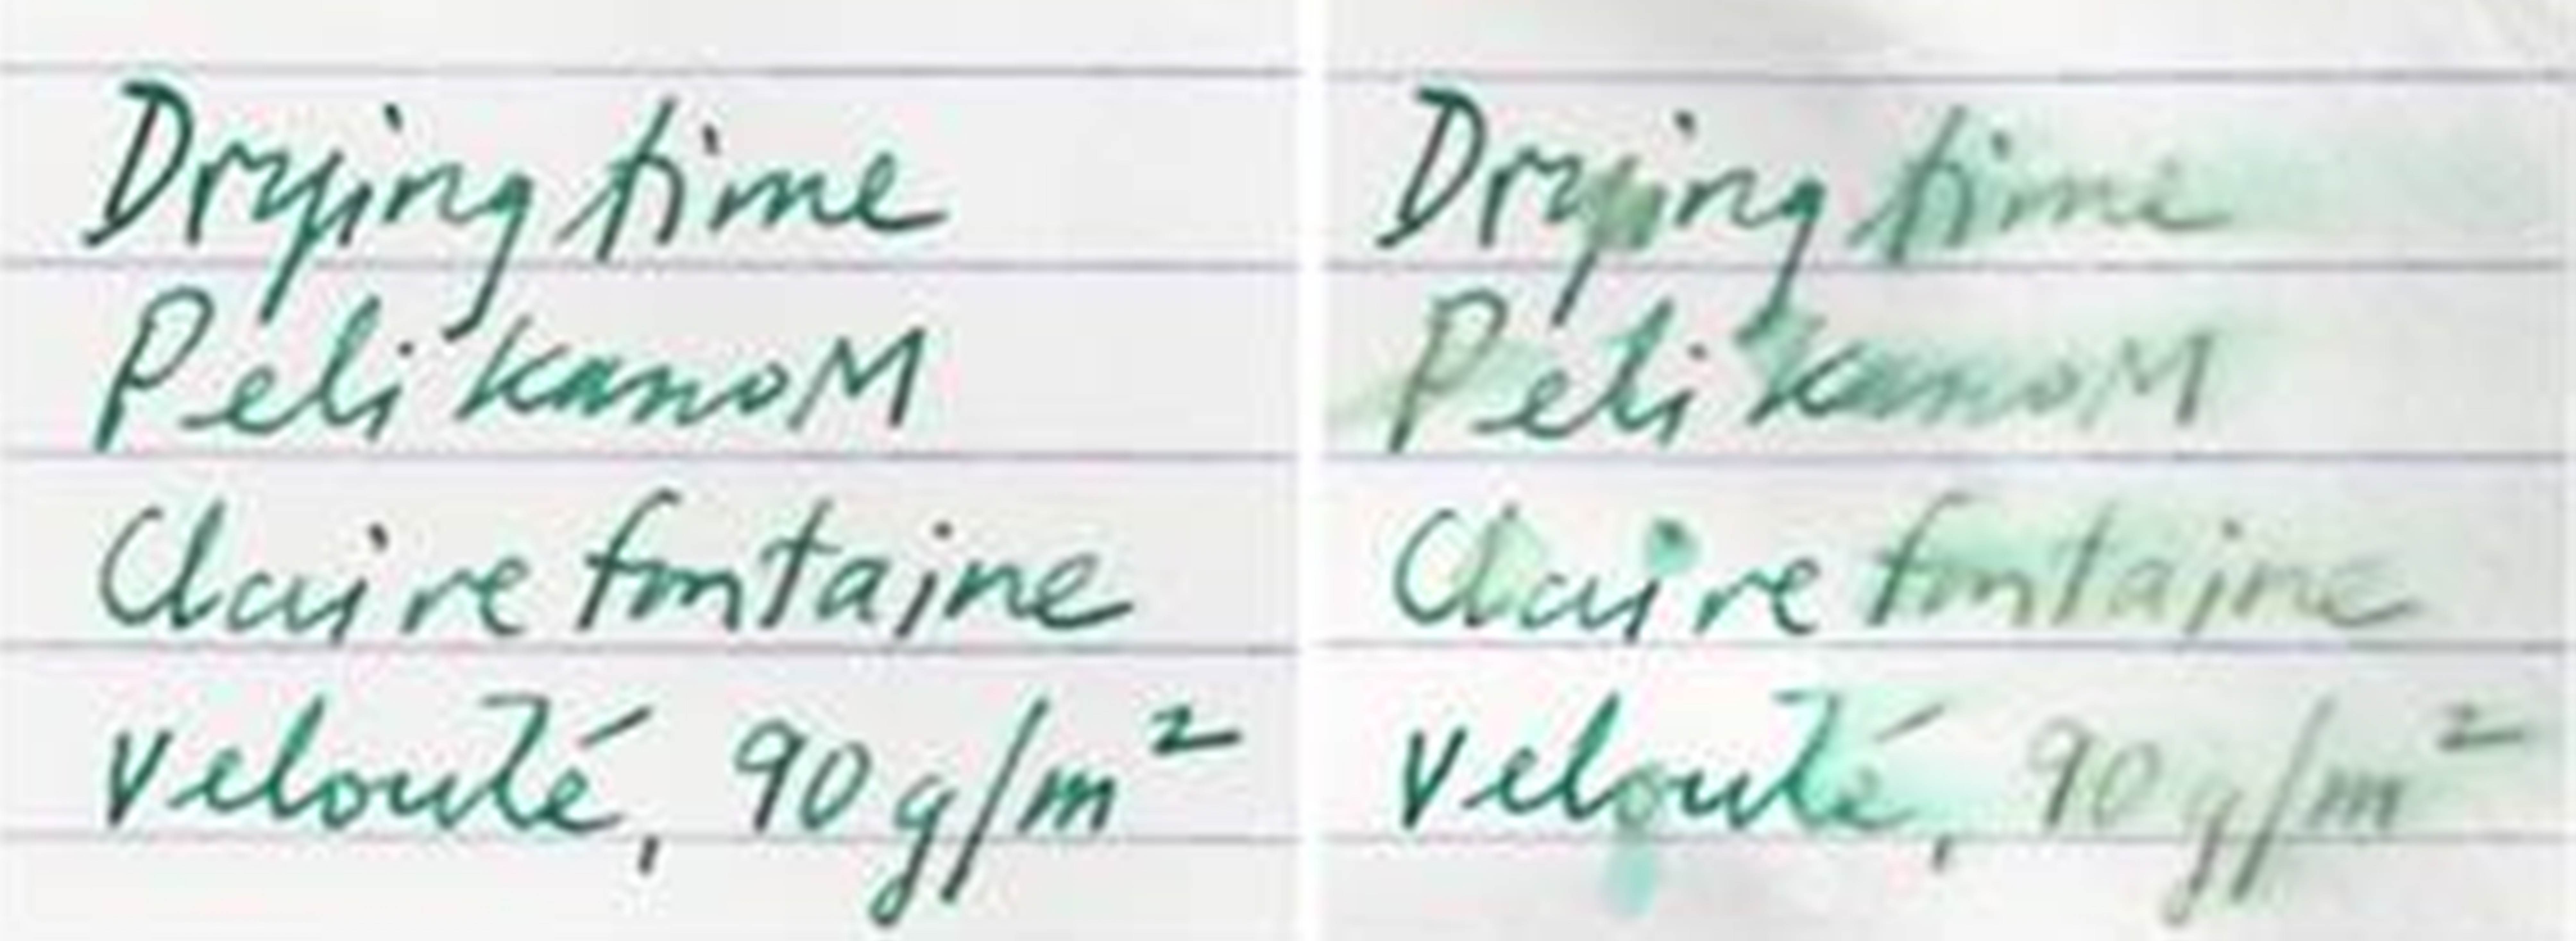 Drying time
Pelikano M
Clairefontaine
Velouté, 90 g/m²
Drying time
Pelikano M
Clairefontaine
Velouté, 90 g/m²